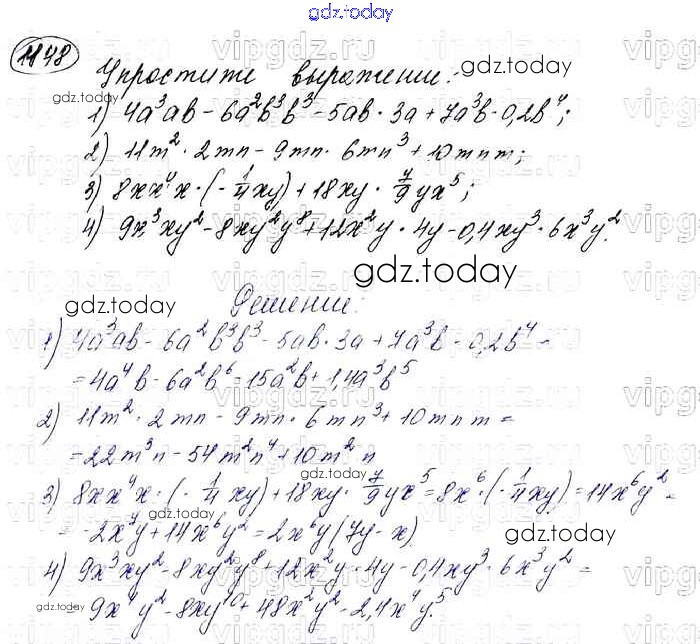 gdz.today
1148
Упростите выражение:
gdz.today
gdz.today
1) 4a³ab - 6a²b³b³ - 5ab · 3a + 7a³b · 0,2b⁴;
2) 11m² · 2mn - 9mn · 6mn³ + 10mnm;
3) 8xx⁴x · (-1/4xy) + 18xy · 7/9yx⁵;
4) 9x³xy² - 8xy²y⁸ + 12x²y · 4y - 0,4xy³ · 6x³y².
gdz.today
gdz.today
Решение:
gdz.today
1) 4a³ab - 6a²b³b³ - 5ab · 3a + 7a³b · 0,2b⁴ =
= 4a⁴b - 6a²b⁶ - 15a²b + 1,4a³b⁵
gdz.today
2) 11m² · 2mn - 9mn · 6mn³ + 10mnm =
= 22m³n - 54m²n⁴ + 10m²n
gdz.today
3) 8xx⁴x · (-1/4xy) + 18xy · 7/9yx⁵ = 8x⁶ · (-1/4xy) = 14x⁶y² =
= 2x⁷y + 14x⁶y² = 2x⁶y(7y - x)
gdz.today
4) 9x³xy² - 8xy²y⁸ + 12x²y · 4y - 0,4xy³ · 6x³y² =
gdz.today
gdz.today
= 9x⁴y² - 8xy¹⁰ + 48x²y² - 2,4x⁴y⁵.